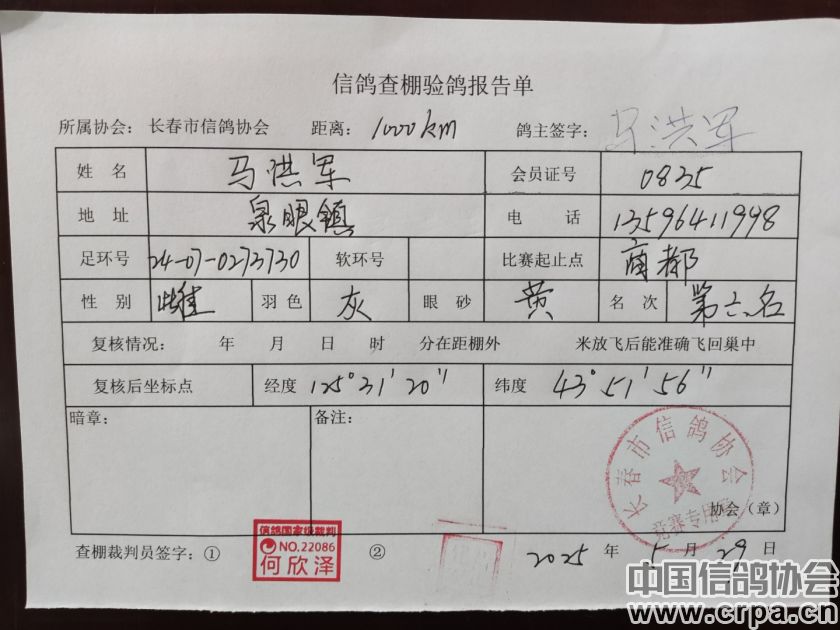 信鸽查棚验鸽报告单
所属协会：长春市信鸽协会 距离：1000km 鸽主签字：马洪军
姓名 马洪军 会员证号 0835
地址 泉眼镇 电话 13596411998
足环号 24-07-0273730 软环号 比赛起止点 商都
性别 雌 羽色 灰 眼砂 黄 名次 第六名
复核情况： 年 月 日 时 分在距棚外 米放飞后能准确飞回巢中
复核后坐标点 经度 125°31′20″ 纬度 43°51′56″
暗章： 备注：
长春市信鸽协会
竞赛专用章
协会（章）
查棚裁判员签字：① ② 2025 年 5 月 29 日
信鸽国家级裁判
NO.22086
何欣泽
中国信鸽协会
www.crpa.cn